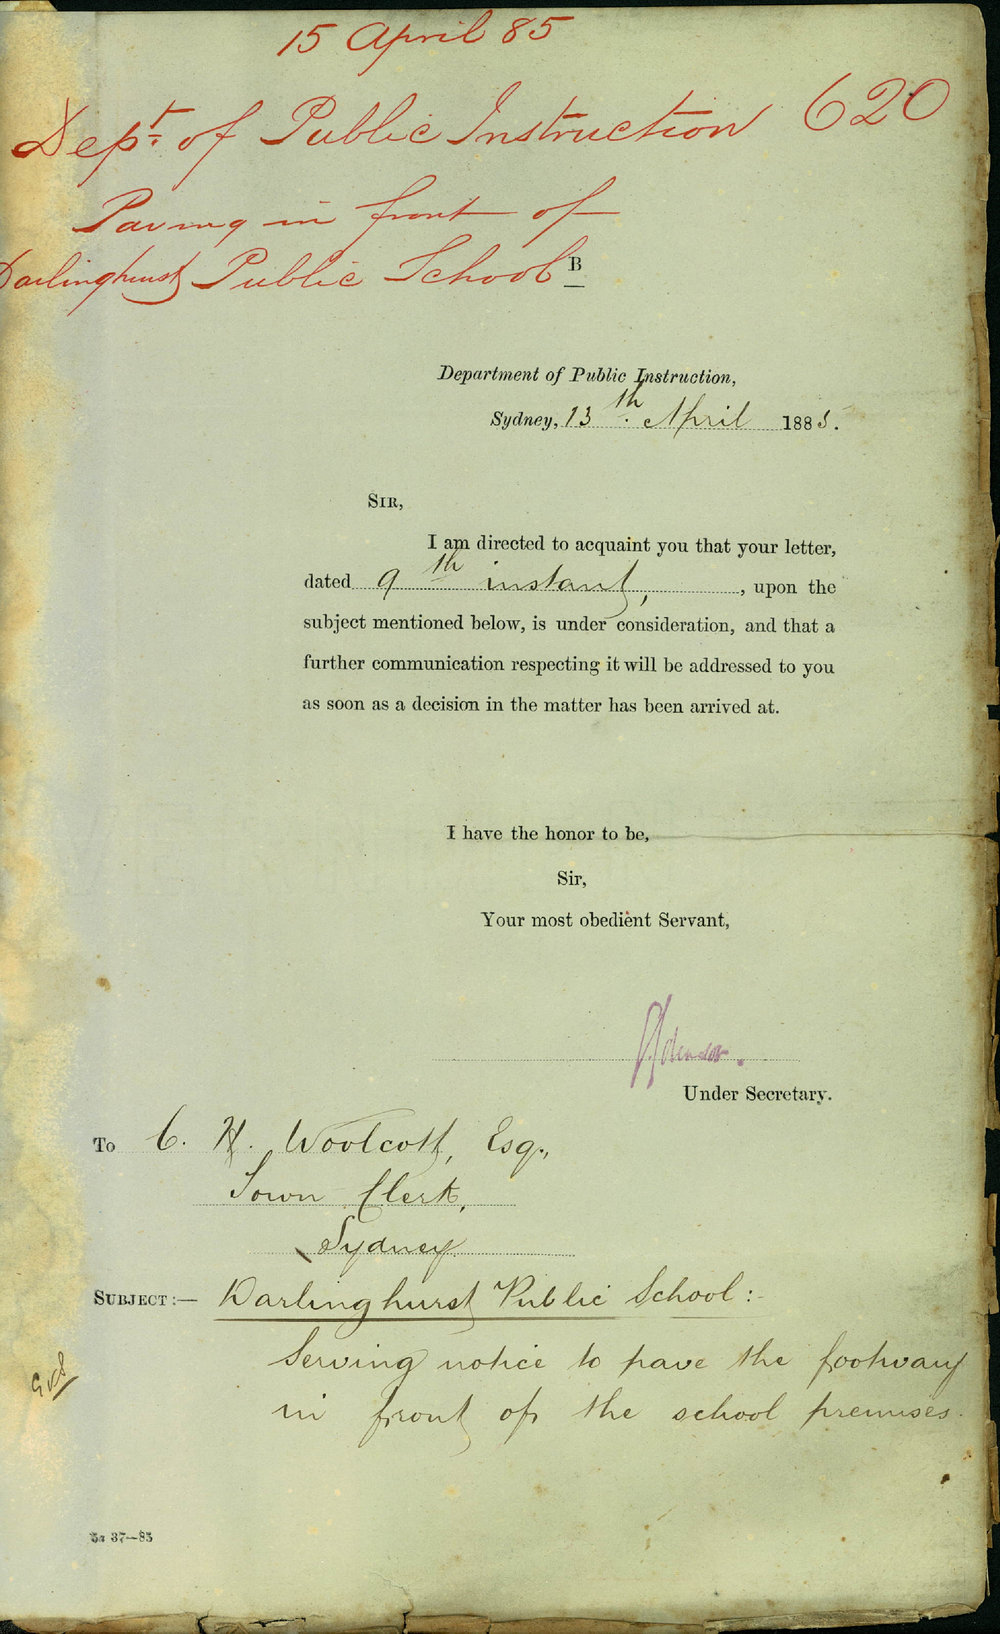 15 April 85
Dept. of Public Instruction 620
Paving in front of
Darlinghurst Public School
B
Department of Public Instruction,
Sydney, 13th April 1885.
SIR,
I am directed to acquaint you that your letter,
dated 9th instant, , upon the
subject mentioned below, is under consideration, and that a
further communication respecting it will be addressed to you
as soon as a decision in the matter has been arrived at.
I have the honor to be,
Sir,
Your most obedient Servant,
Under Secretary.
To C. H. Woolcott, Esq.,
Town Clerk,
Sydney
SUBJECT:— Darlinghurst Public School:-
Serving notice to pave the footway
in front of the school premises.
37—85